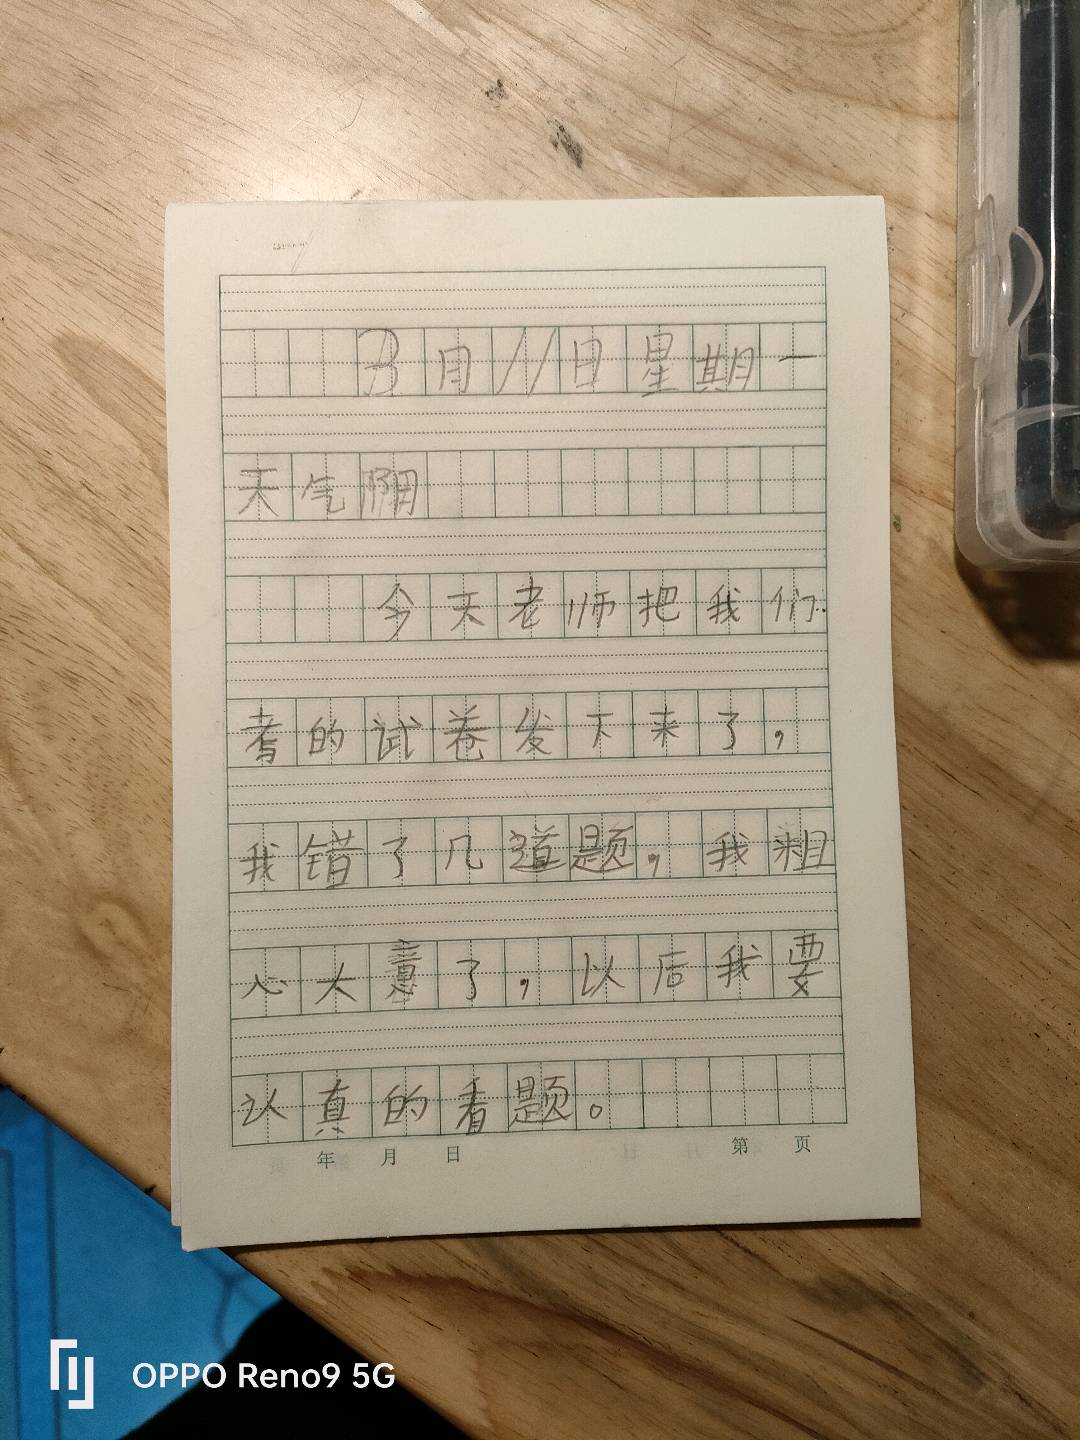 3月11日星期一
天气阴
今天老师把我们
考的试卷发下来了，
我错了几道题，我粗
心大意了，以后我要
认真的看题。
年 月 日 第 页
OPPO Reno9 5G